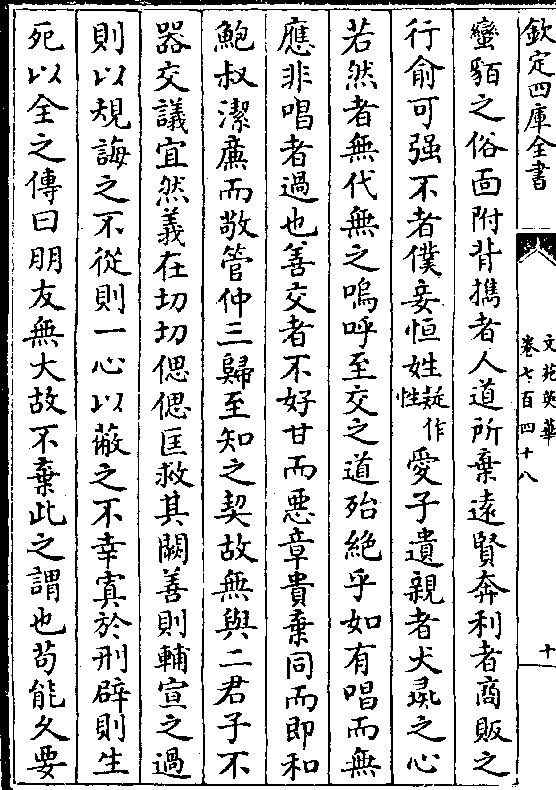 欽定四庫全書
文苑英華
卷七百四十八
十
蠻貊之俗面附背攜者人道所棄遠賢奔利者商販之
行俞可强不者僕妾恒姓疑作性愛子遺親者犬彘之心
若然者無代無之嗚呼至交之道殆絶乎如有唱而無
應非唱者過也善交者不好甘而惡章貴棄同而即和
鮑叔潔廉而敬管仲三歸至知之契故無與二君子不
器交議宜然義在切切偲偲匡救其闕善則輔宣之過
則以規誨之不從則一心以蔽之不幸寘於刑辟則生
死以全之傳曰朋友無大故不棄此之謂也苟能久要